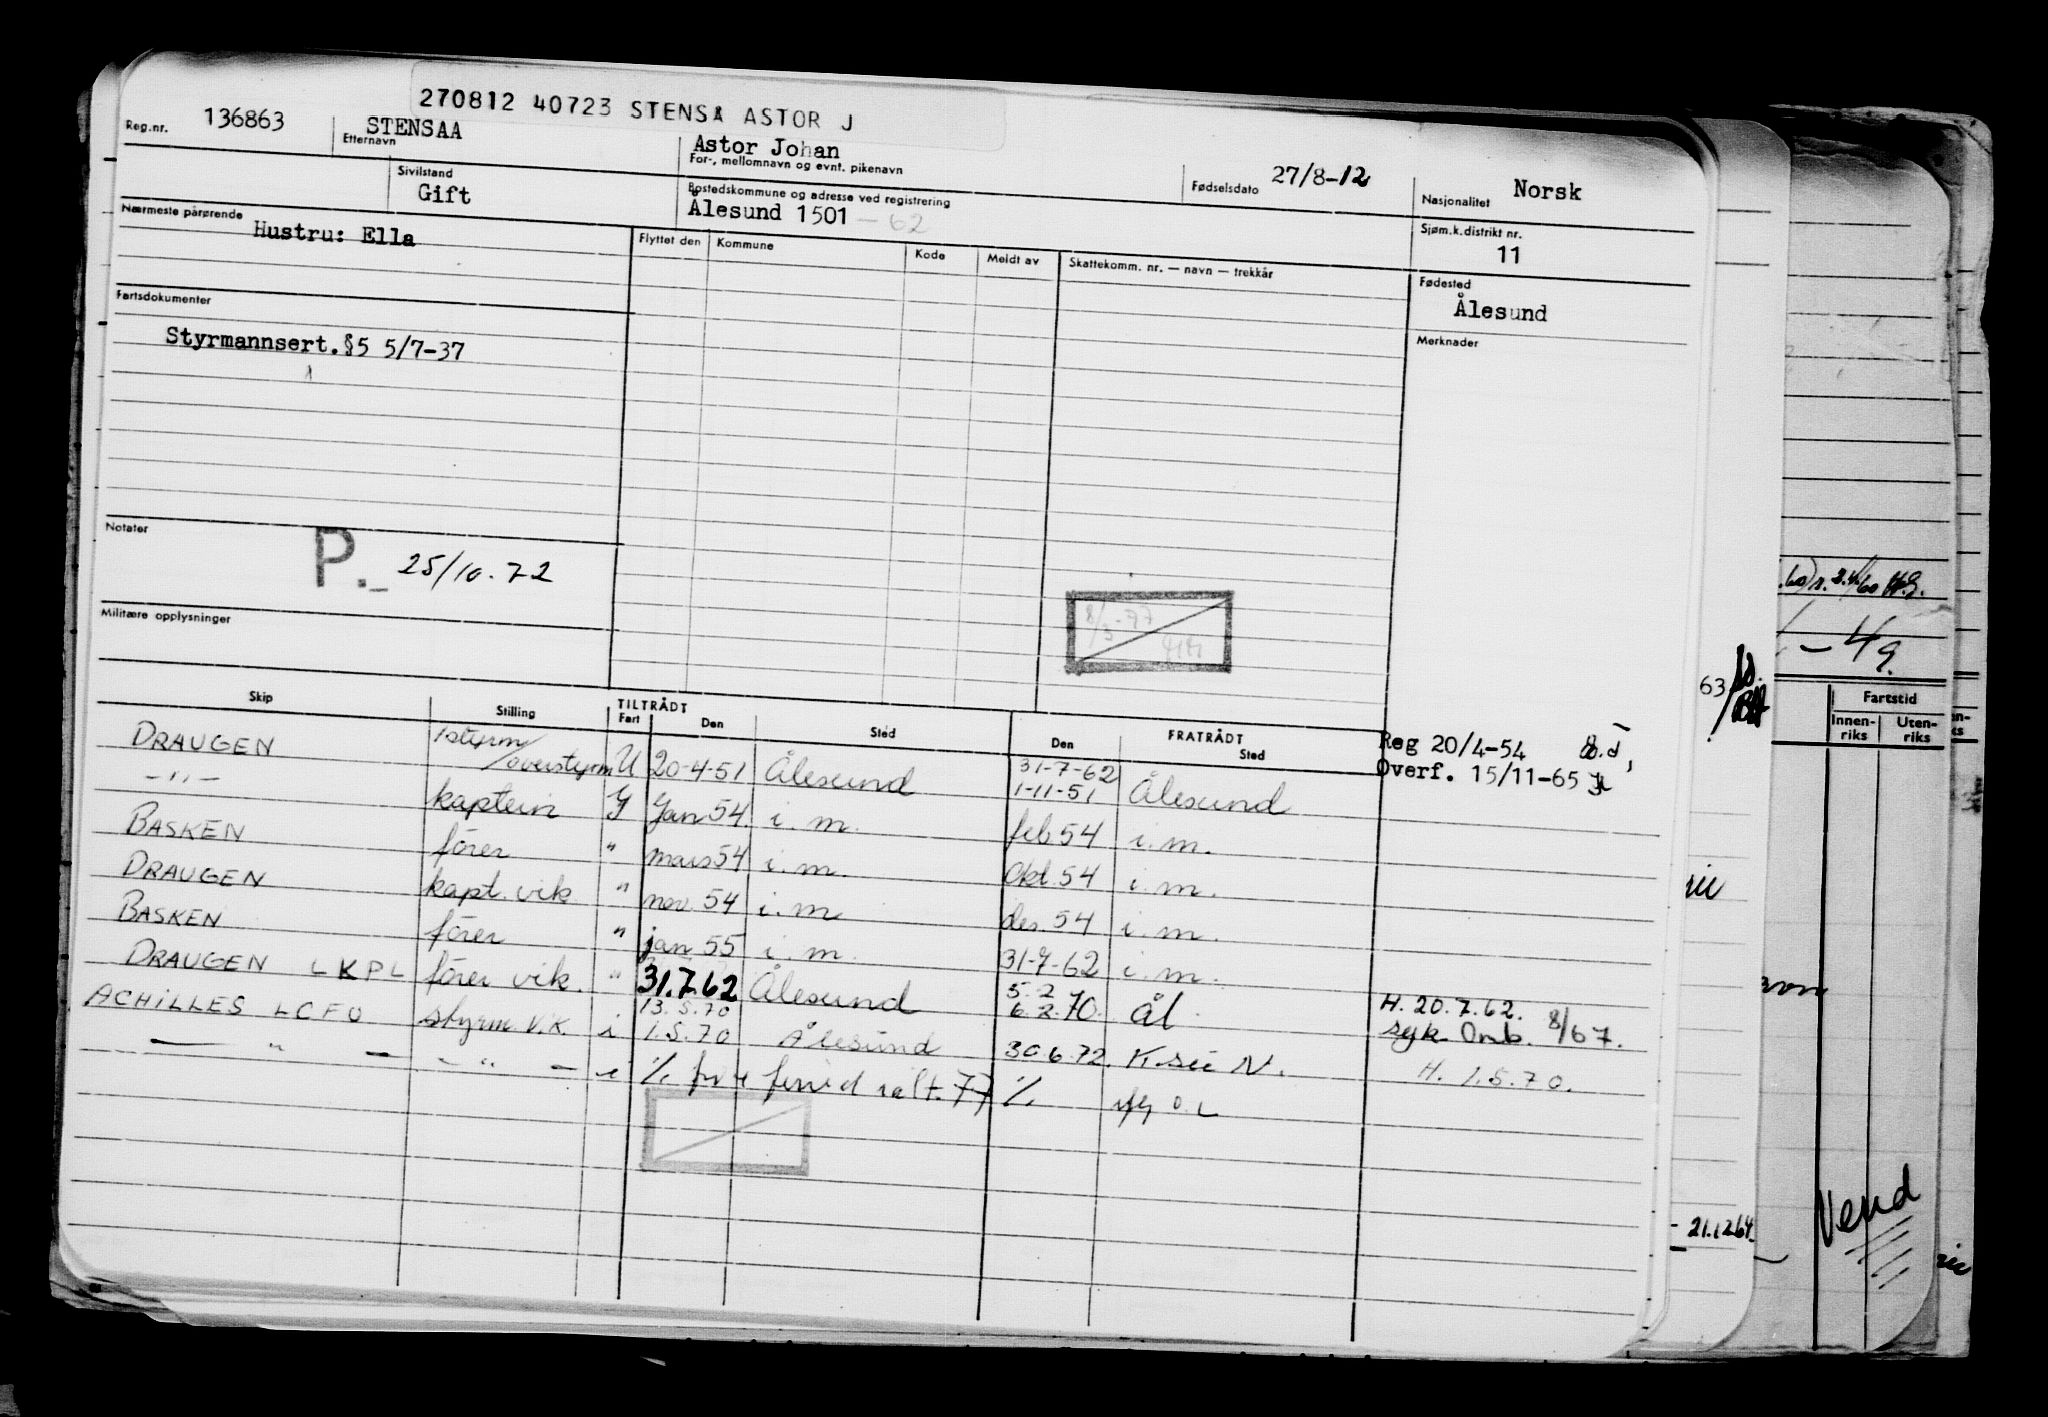 270812 40723 STENSA ASTOR J
Reg.nr. 136863
STENSAA
Etternavn
Astor Johan
For-, mellomnavn og evnt. pikenavn
Fødselsdato 27/8-12
Nasjonalitet Norsk
Sivilstand
Gift
Bostedskommune og adresse ved registrering
Ålesund 1501 - 62
Sjøm.k.distrikt nr.
11
Nærmeste pårørende
Hustru: Ella
Flyttet den Kommune Kode Meldt av Skattekomm. nr. — navn — trekkår
Fødested
Ålesund
Fartsdokumenter
Styrmannsert.§5 5/7-37
Merknader
Notater
P. 25/10.72
8/3-77
Militære opplysninger
Skip Stilling TILTRÅDT Fart Den Sted FRATRÅDT Den Sted
Reg 20/4-54
Overf. 15/11-65
DRAUGEN 1styrm/overstyrm U 20-4-51 Ålesund 31-7-62 1-11-51 Ålesund
-"- kaptein G Jan 54 i.m. feb 54 i.m.
BASKEN fører " mars 54 i.m. Okt 54 i.m.
DRAUGEN kapt. vik " nov. 54 i.m. des. 54 i.m.
BASKEN fører " jan 55 i.m. 31-7-62 i.m.
DRAUGEN LKPL fører vik. " 31.7.62 Ålesund 5.2 6.2.70 Ål H. 20.7.62.
syk Omb. 8/67.
ACHILLES LCFO styrm v.k. i 13.5.70 1.5.70 Ålesund 30.6.72. K.sü N. H. 1.5.70.
— " — - " - i 77
63
21.1264
- 4/9
Fartstid
Innen-riks Uten-riks
Vend